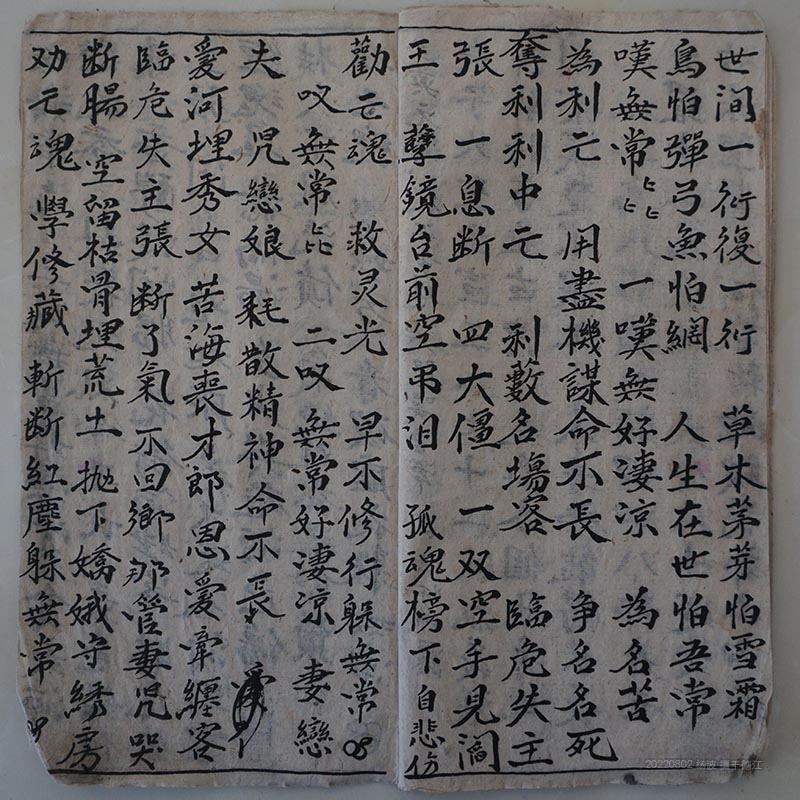 世间一衍復一衍　草木茅芽怕雪霜
鳥怕彈弓魚怕網　人生在世怕吾常
嘆無常〻〻　一嘆無好凄凉　為名苦
為利亡　用盡機謀命不長　争名名死
奪利利中亡　利藪名場客　臨危失主
張　一息断　四大僵　一双空手見閻
王　孽鏡台前空弔泪　孤魂榜下自悲伤
勸亡魂　救灵光　早不修行躲無常
叹無常　二叹無常好凄凉　妻戀
夫　児戀娘　耗散精神命不長
愛河埋秀女　苦海喪才郎　恩愛牽纏客
臨危失主張　断了氣不回鄉　那管妻児哭
断腸　空留枯骨埋荒土　抛下嬌娥守綉房
劝亡魂　學修藏　斬断紅塵躲無常
20220802